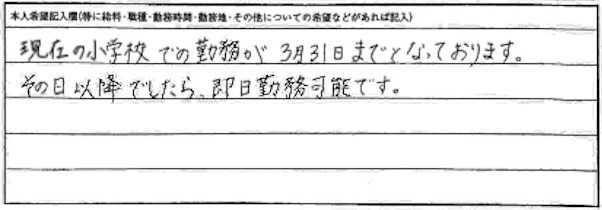 本人希望記入欄(特に給料・職種・勤務時間・勤務地・その他についての希望などがあれば記入)
現在の小学校での勤務が3月31日までとなっております。
その日以降でしたら、即日勤務可能です。